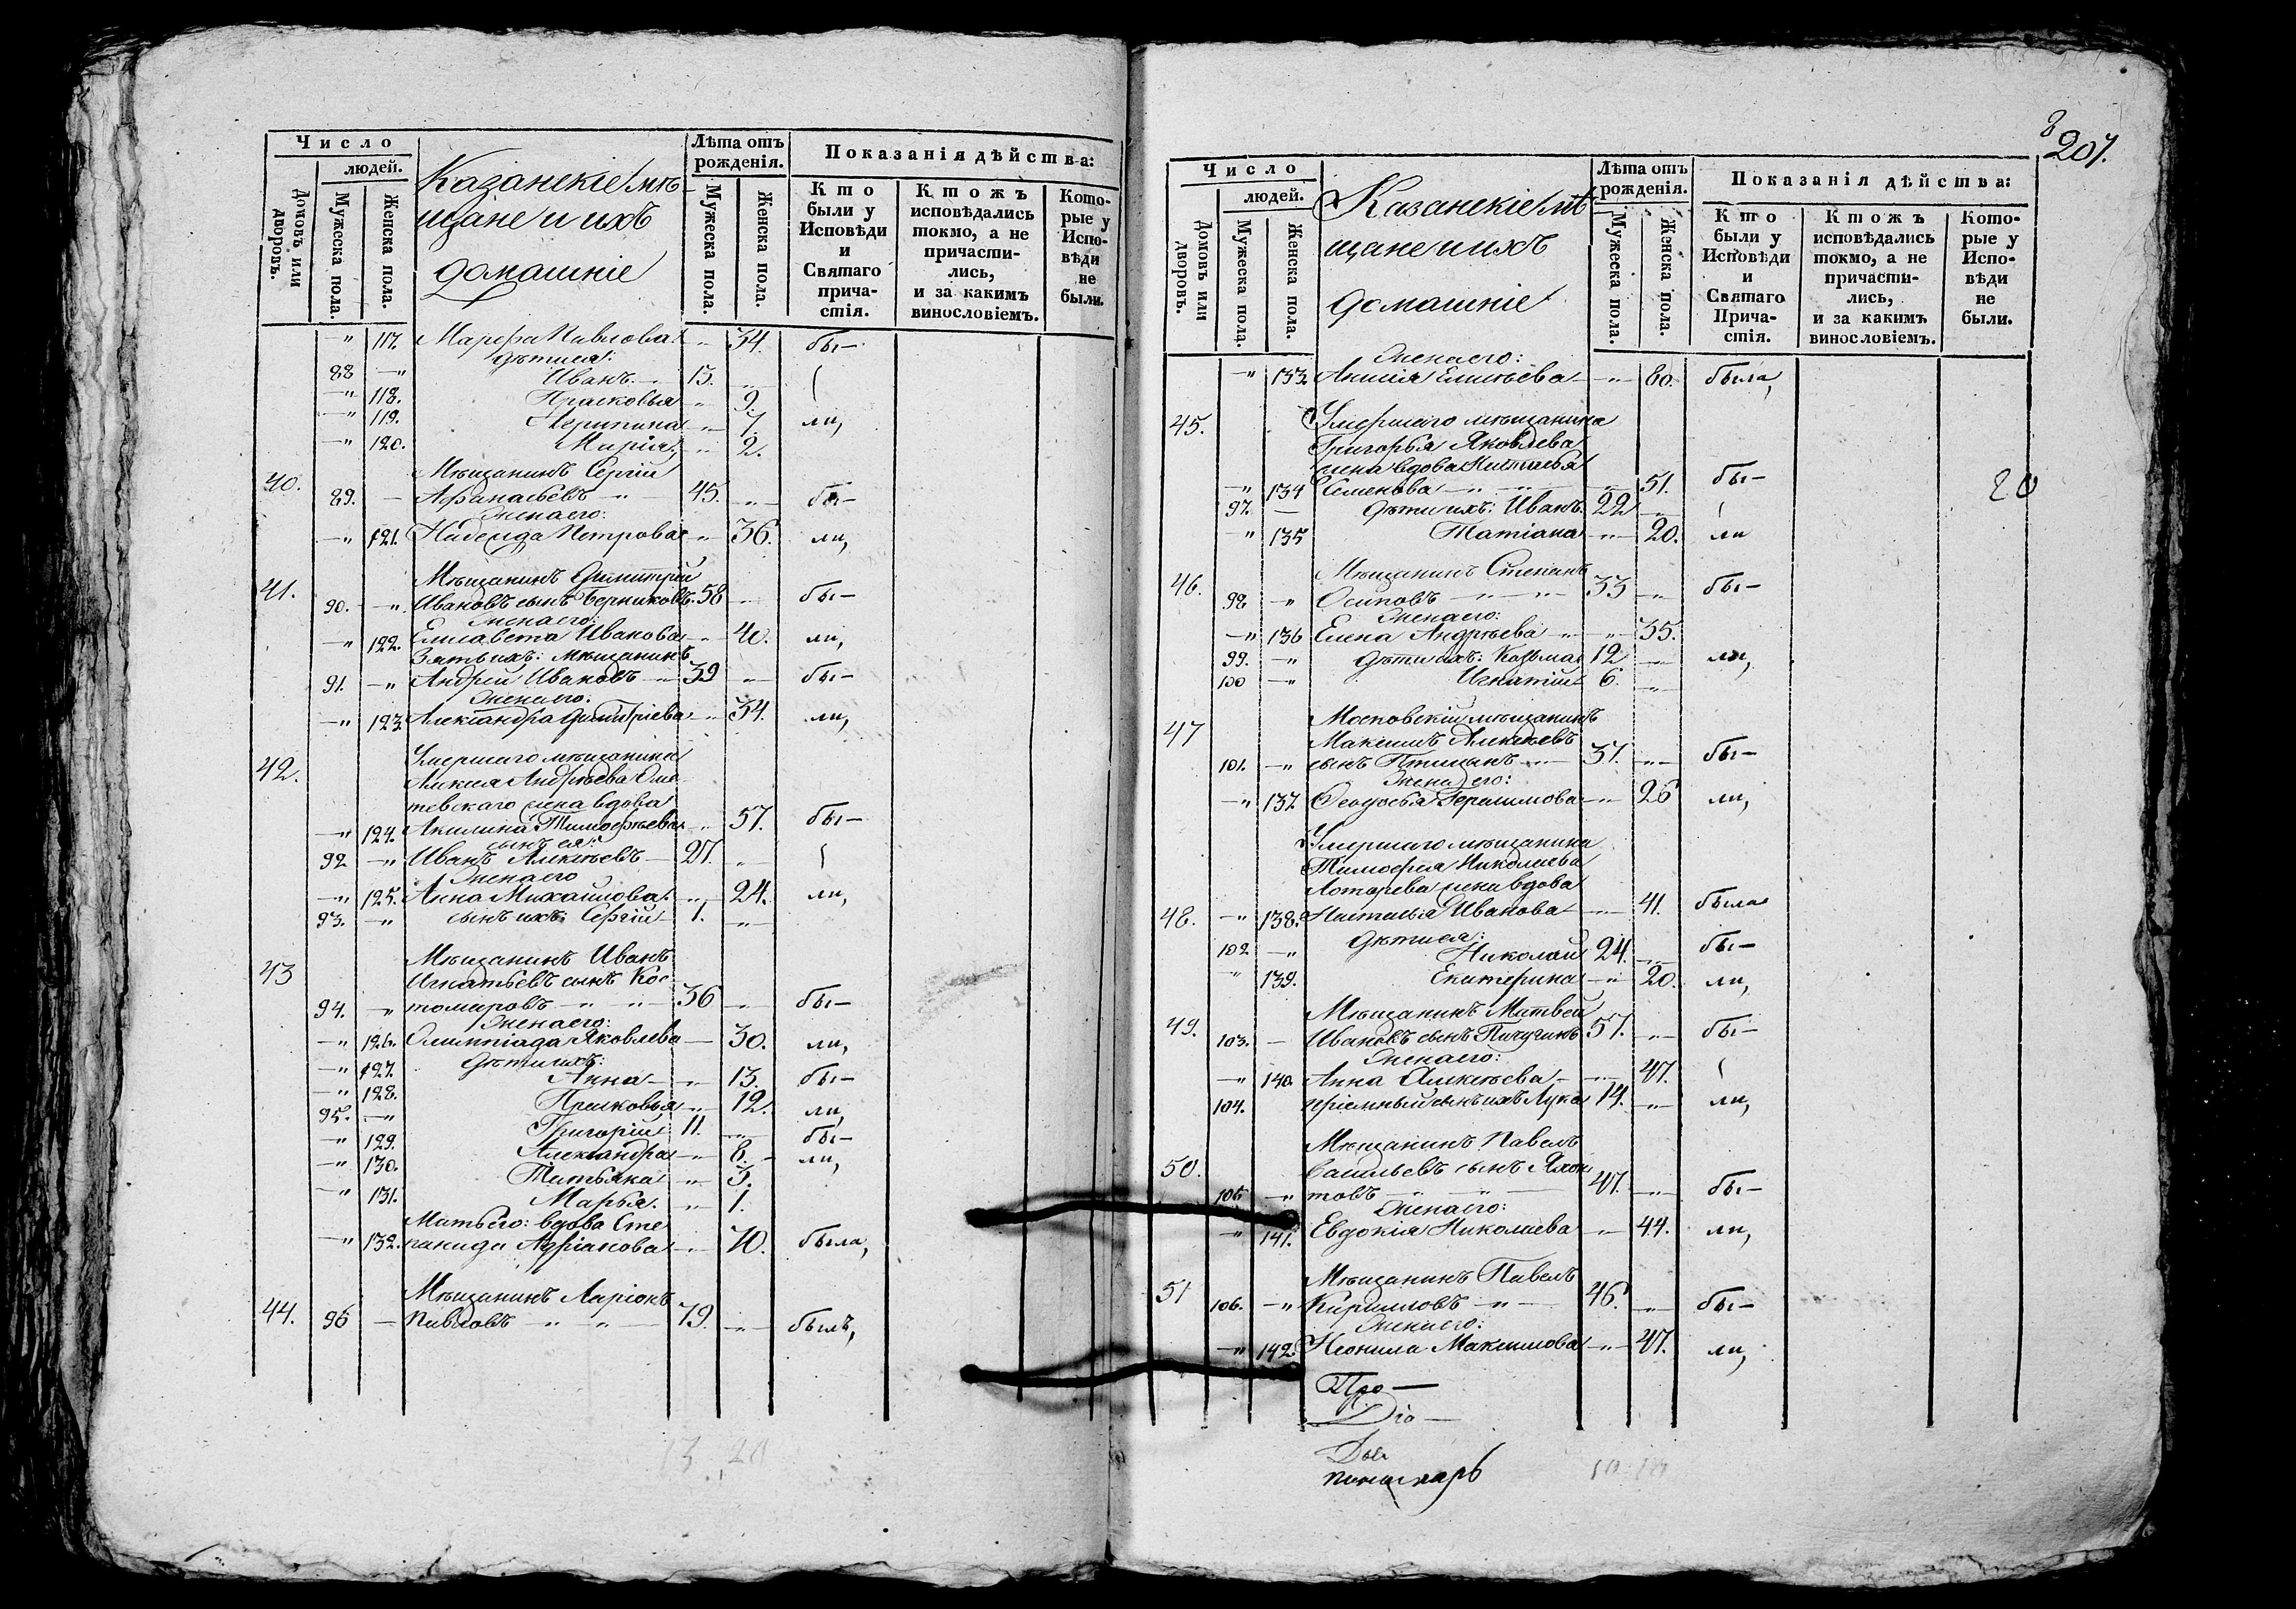 Число
людей.
Домовъ или дворовъ.
Мужеска пола.
Женска пола.
Казанскіе мѣ-
щане и ихъ
домашніе
Лѣта отъ рожденія.
Мужеска пола.
Женска пола.
Показанія дѣйства:
Кто были у Исповѣди и Святаго причастія.
Ктожъ исповѣдались токмо, а не причастились, и за какимъ винословіемъ.
Которые у Исповѣди не были.
" 117. Марфа Павлова " 34. бы-
дѣти ея:
88 " Иванъ 13. "
" 118. Прасковья " 9.
" 119. " 7. ли,
" 120. Марія " 2.
40. Мѣщанинъ Сергій
89. Афанасьевъ " 45. " бы-
Жена его:
" 121. Надежда Петрова " 36. ли,
41. Мѣщанинъ Димитрій
90. " Ивановъ сынъ Берниковъ 58 " бы-
Жена его:
" 122. Елисавета Иванова " 40. ли,
Зять ихъ: мѣщанинъ
91. " Андрей Ивановъ 39 " бы-
Жена его:
" 123. Александра Димитріева " 34. ли,
42. Умершаго мѣщанина
Алексея Андрѣева
жена вдова
" 124. Акилина Тимофѣева " 57. бы-
сынъ ея:
92 " Иванъ Алексѣевъ 27. "
Жена его
" 125. Анна Михайлова " 24. ли,
93. " сынъ ихъ: Сергій 1. "
43 Мѣщанинъ Иванъ
Игнатьевъ сынъ Кос-
94. " томаровъ " " 36 " бы-
Жена его:
" 126. Олимпіада Яковлева 30. ли,
дѣти ихъ:
" 127. Анна " 13. бы-
" 128. Прасковья " 12. ли,
95. " Григорій 11. " бы-
" 129. Александра " 8. ли,
" 130. Татьяна " 3.
" 131. Марья. " 1.
Мать его: вдова Сте
" 132. панида Адріанова " 70. была,
44. Мѣщанинъ Ларіонъ
96 Павловъ " " 79. " былъ,
207.
Число
людей.
Домовъ или дворовъ.
Мужеска пола.
Женска пола.
Казанскіе мѣ-
щане и ихъ
домашніе
Лѣта отъ рожденія.
Мужеска пола.
Женска пола.
Показанія дѣйства:
Кто были у Исповѣди и Святаго Причастія.
Ктожъ исповѣдались токмо, а не причастились, и за какимъ винословіемъ.
Которые у Исповѣди не были.
Жена его:
" 133. " 80. была,
45. Умершаго мѣщанина
Григорья Яковлева
жена вдова Наталья
" 134 Семенова " 51. бы-
97. дѣти ихъ: Иванъ 22 "
" 135 Татіана " 20. ли
46. Мѣщанинъ Степанъ
98 " Осиповъ " 33 " бы-
Жена его:
" 136 Елена Андрѣева " " 35.
99. " дѣти ихъ: Козьма 12 " ли,
100 " Игнатій 6. "
47 Московскій мѣщанинъ
Максимъ Алексѣевъ
101. " сынъ Птицынъ 37. " бы-
Жена его:
" 137. Ѳеодосья Герасимова " 26 ли,
Умершаго мѣщанина
Тимофея Николаева
Лотарева жена вдова
48. " 138. Наталья Иванова " 41. была
дѣти ея:
102 " Николай 24. " бы-
" 139. Екатерина " 20. ли,
Мѣщанинъ Матвей
49. 103. Ивановъ сынъ Пичугинъ 57. " бы-
Жена его:
" 140. Анна Алексѣева " 47.
104. пріемный сынъ ихъ Лука 14. " ли,
Мѣщанинъ Павелъ
50. Васильевъ сынъ Яхон
105 " товъ " 47. " бы-
Жена его:
" 141. Евдокія Николаева " 44. ли,
Мѣщанинъ Павелъ
51 106. " Кирилловъ " 46. " бы-
Жена его:
" 142. Неонила Максимова " 47. ли,
20
Про-
Діа-
Дья
пономарь